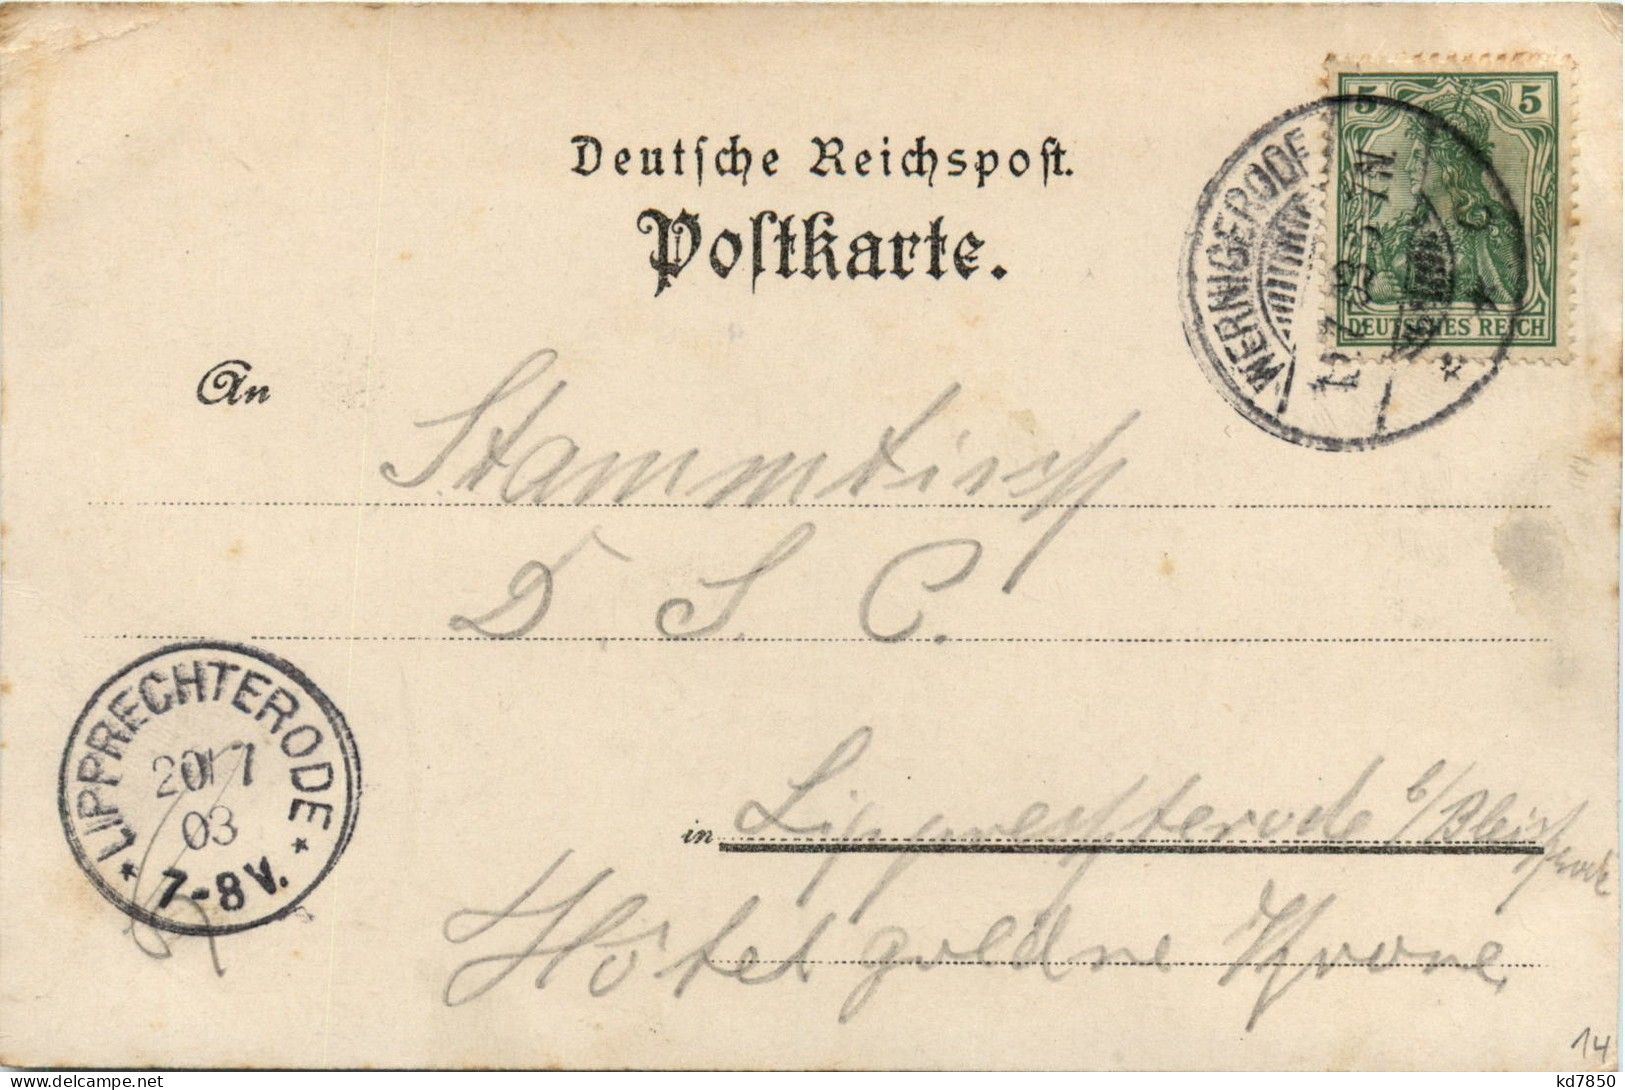 Deutsche Reichspost.
Postkarte.
5 5
DEUTSCHES REICH
WERNIGERODE
An
Stammtisch
D S. C.
LIPPRECHTERODE
20 7
03
7-8 V.
in Lipprechterode b/Bleicherode
Hôtel goldne Krone
14
kd7850